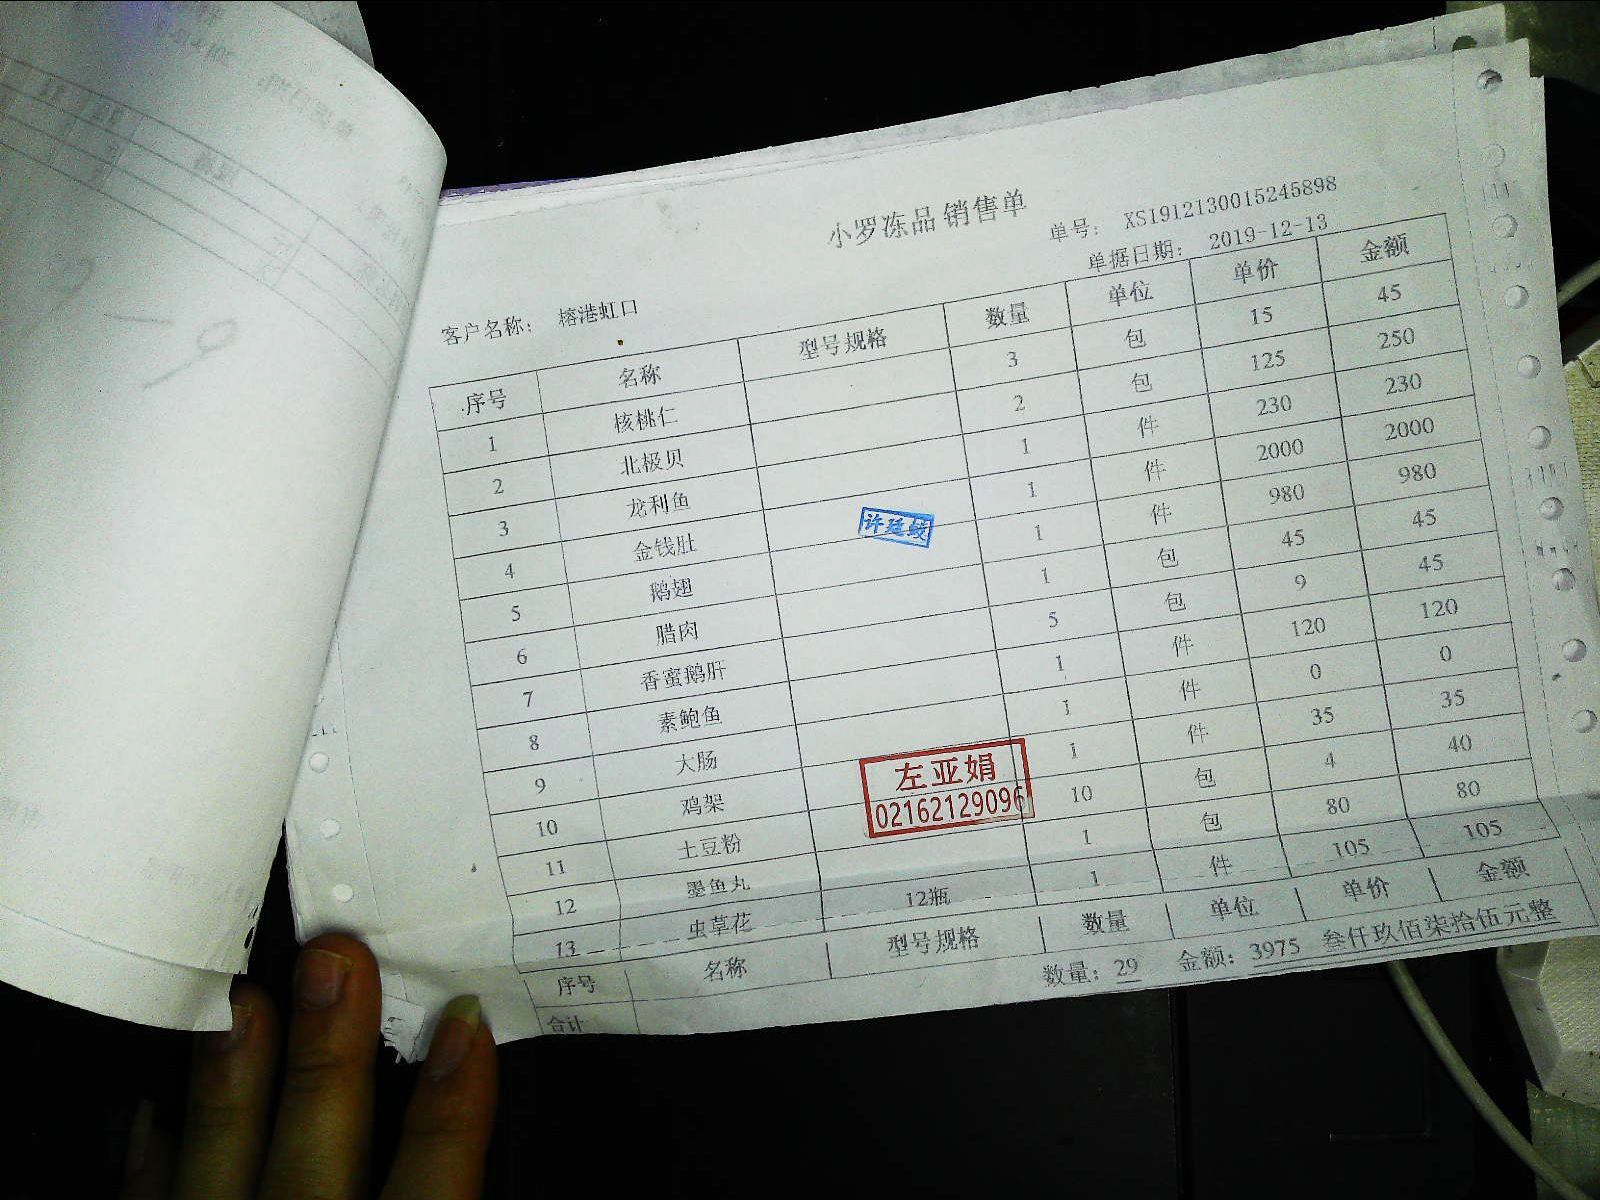 小罗冻品 销售单
单号: XS1912130015245898
客户名称: 榕港虹口
单据日期: 2019-12-13
序号 名称 型号规格 数量 单位 单价 金额
1 核桃仁 3 包 15 45
2 北极贝 2 包 125 250
3 龙利鱼 1 件 230 230
4 金钱肚 1 件 2000 2000
5 鹅翅 1 件 980 980
6 腊肉 1 包 45 45
7 香蜜鹅肝 5 包 9 45
8 素鲍鱼 1 件 120 120
9 大肠 1 件 0 0
10 鸡架 1 件 35 35
11 土豆粉 10 包 4 40
12 墨鱼丸 1 包 80 80
13 虫草花 12瓶 1 件 105 105
序号 名称 型号规格 数量 单位 单价 金额
合计 数量: 29 金额: 3975 叁仟玖佰柒拾伍元整
左亚娟
02162129096